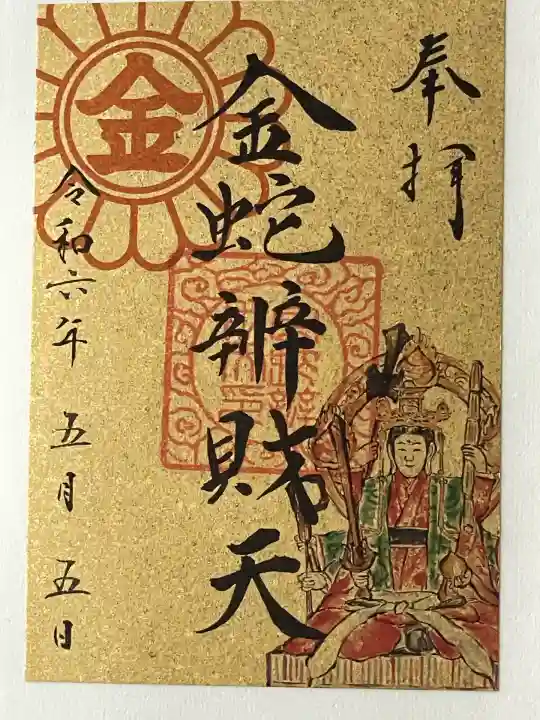 奉拝
金
金蛇辨財天
令和六年 五月 五日